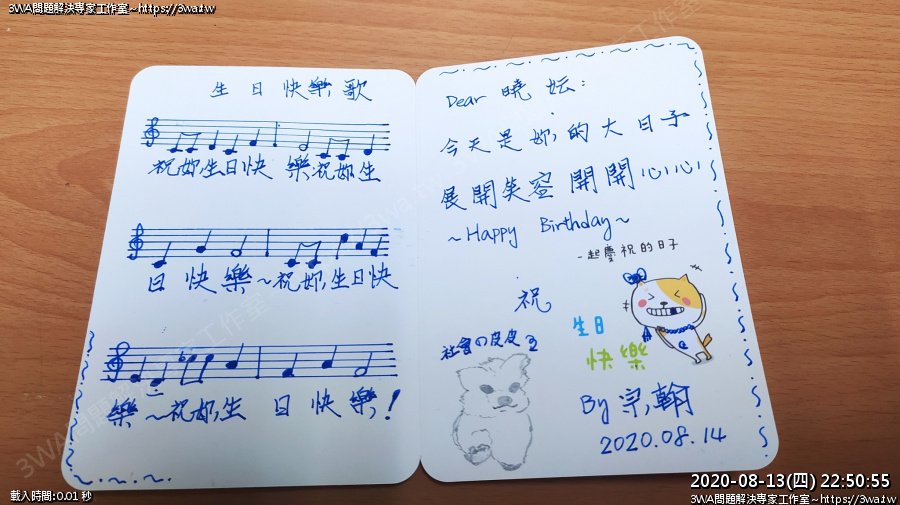 3WA問題解決專家工作室~https://3wa.tw
生日快樂歌
祝妳生日快 樂祝妳生
日快樂~祝妳生日快
樂~祝妳生 日快樂!
Dear 曉妘:
今天是妳的大日子
展開笑容開開心心
~Happy Birthday~
一起慶祝的日子
祝
生日
快樂
社會の皮皮
By 宗翰
2020.08.14
載入時間:0.01 秒
2020-08-13(四) 22:50:55
3WA問題解決專家工作室~https://3wa.tw